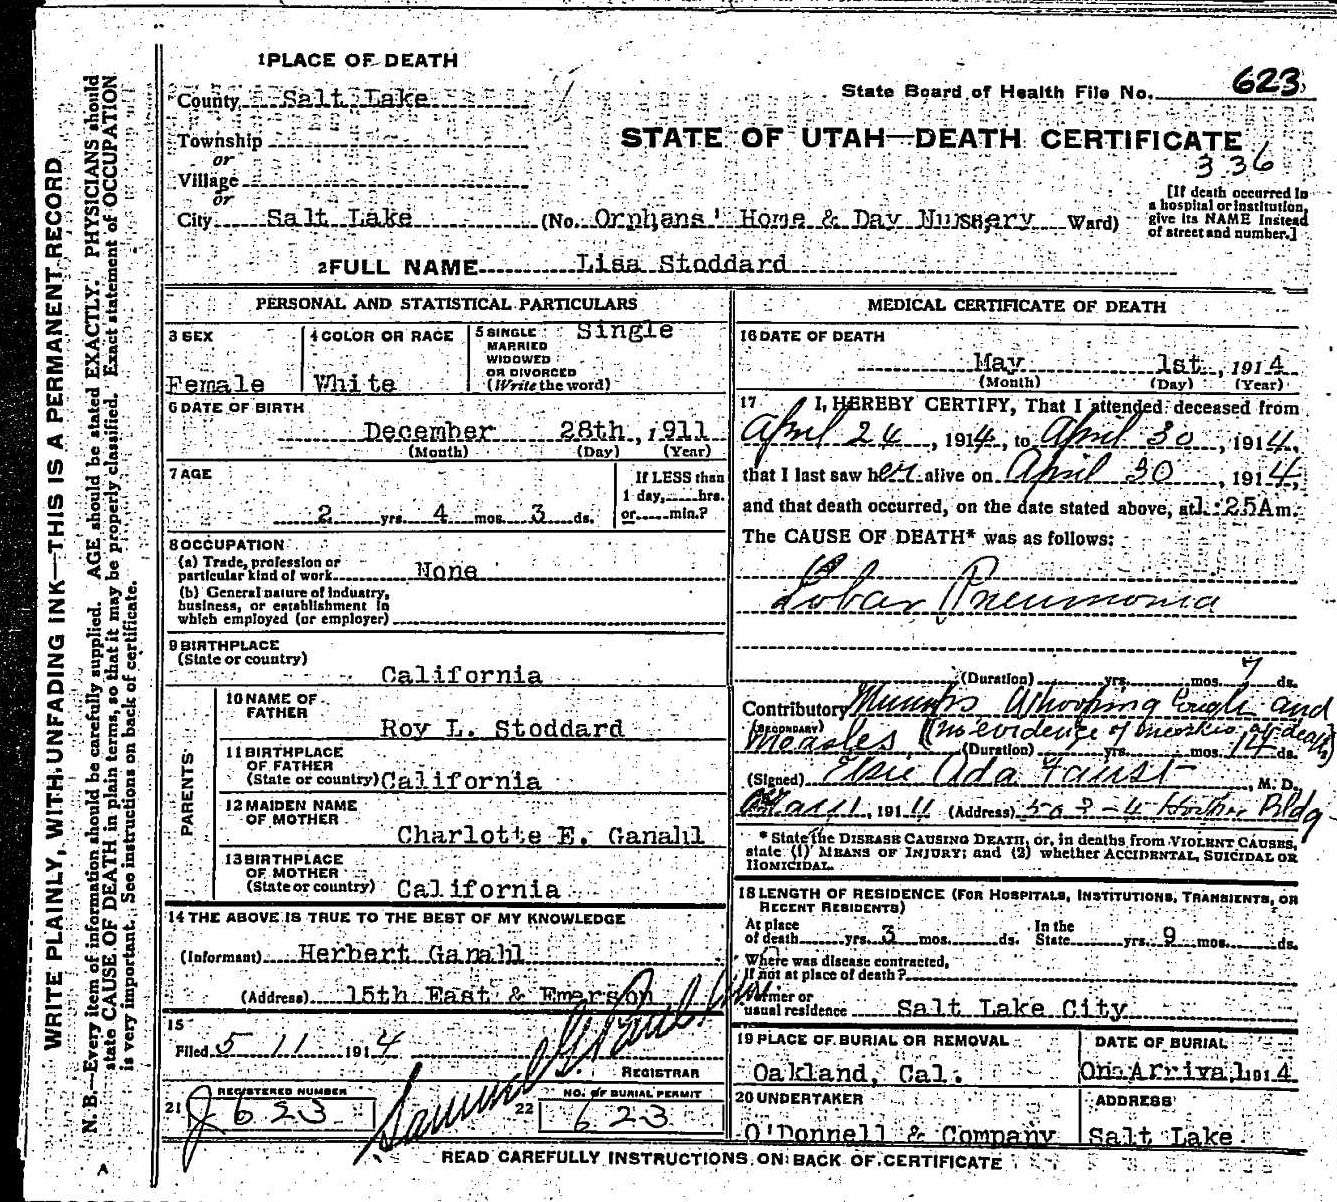 1 PLACE OF DEATH
County Salt Lake
State Board of Health File No. 623
Township
or
Village
or
City Salt Lake (No. Orphans' Home & Day Nursery Ward)
STATE OF UTAH—DEATH CERTIFICATE
336
[If death occurred in
a hospital or institution,
give its NAME instead
of street and number.]
2 FULL NAME Lisa Stoddard
PERSONAL AND STATISTICAL PARTICULARS
3 SEX
Female
4 COLOR OR RACE
White
5 SINGLE
MARRIED
WIDOWED
OR DIVORCED
(Write the word)
Single
6 DATE OF BIRTH
December 28th, 1911
(Month) (Day) (Year)
7 AGE
2 yrs. 4 mos. 3 ds.
If LESS than
1 day, hrs.
or min.?
8 OCCUPATION
(a) Trade, profession or
particular kind of work None
(b) General nature of industry,
business, or establishment in
which employed (or employer)
9 BIRTHPLACE
(State or country)
California
PARENTS
10 NAME OF
FATHER
Roy L. Stoddard
11 BIRTHPLACE
OF FATHER
(State or country) California
12 MAIDEN NAME
OF MOTHER
Charlotte E. Ganahl
13 BIRTHPLACE
OF MOTHER
(State or country) California
14 THE ABOVE IS TRUE TO THE BEST OF MY KNOWLEDGE
(Informant) Herbert Ganahl
(Address) 15th East & Emerson
15
Filed 5 11 1914
REGISTRAR
21
REGISTERED NUMBER
623
22
NO. OF BURIAL PERMIT
623
MEDICAL CERTIFICATE OF DEATH
16 DATE OF DEATH
May 1st, 1914
(Month) (Day) (Year)
17 I, HEREBY CERTIFY, That I attended deceased from
April 24, 1914, to April 30, 1914,
that I last saw her alive on April 30, 1914,
and that death occurred, on the date stated above, at 1:25A m.
The CAUSE OF DEATH* was as follows:
Lobar Pneumonia
(Duration) yrs. mos. 7 ds.
Contributory Mumps Whooping Cough and
(SECONDARY)
Measles (no evidence of measles at death)
(Duration) yrs. mos. 14 ds.
(Signed) Elsie Ada Faust, M. D.
1914 (Address) Bldg
* State the DISEASE CAUSING DEATH, or, in deaths from VIOLENT CAUSES,
state (1) MEANS OF INJURY; and (2) whether ACCIDENTAL, SUICIDAL OR
HOMICIDAL.
18 LENGTH OF RESIDENCE (FOR HOSPITALS, INSTITUTIONS, TRANSIENTS, OR
RECENT RESIDENTS)
At place
of death yrs. 3 mos. ds.
In the
State yrs. 9 mos. ds.
Where was disease contracted,
if not at place of death?
Former or
usual residence Salt Lake City
19 PLACE OF BURIAL OR REMOVAL
Oakland, Cal.
DATE OF BURIAL
On Arrival, 1914
20 UNDERTAKER
O'Donnell & Company
ADDRESS
Salt Lake
READ CAREFULLY INSTRUCTIONS ON BACK OF CERTIFICATE
WRITE PLAINLY, WITH UNFADING INK—THIS IS A PERMANENT RECORD
N. B.—Every item of information should be carefully supplied. AGE should be stated EXACTLY. PHYSICIANS should
state CAUSE OF DEATH in plain terms, so that it may be properly classified. Exact statement of OCCUPATION
is very important. See instructions on back of certificate.